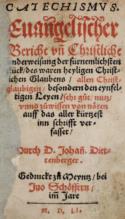 CATECHISMVS.
Euangelischer
Bericht vñ Christliche
vnderweisung der fürnemlichsten
stück des waren heyligen Christ-
lichen Glaubens / allen Christ-
glaubigen / besondern den eynfel-
tigen Leyen / sehr gůt / nutz /
vnd zůwissen von nöten
auff das aller kürtzest
inn schrifft ver-
fasset /
Durch D. Johañ. Diet-
tenberger.
Gedruckt zů Meyntz / bei
Juo Schöffern /
im Jare
M. D. LI.